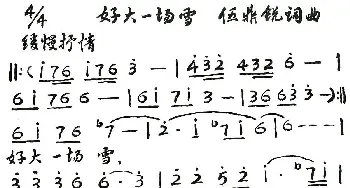 4/4 好大一场雪 伍鼎锐词曲
缓慢抒情
‖:(i̇76 i̇76 3̇ — | 4̇3̇2̇ 4̇3̇2̇ 6 — |
6i̇76 6 — | 6i̇7i̇ 3 — | 3663̇ 3̇ —):‖
6i̇ 76 ᵇ7 — | 2̇ · i̇ ᵇ7i̇ 6 | 6 - - - |
好大一场雪,
3̇ 3̇ 3̇ 6 6 · 3̇ | 2̇ 2̇ 5̇ 2̇ i̇ · ᵇ7i̇ |